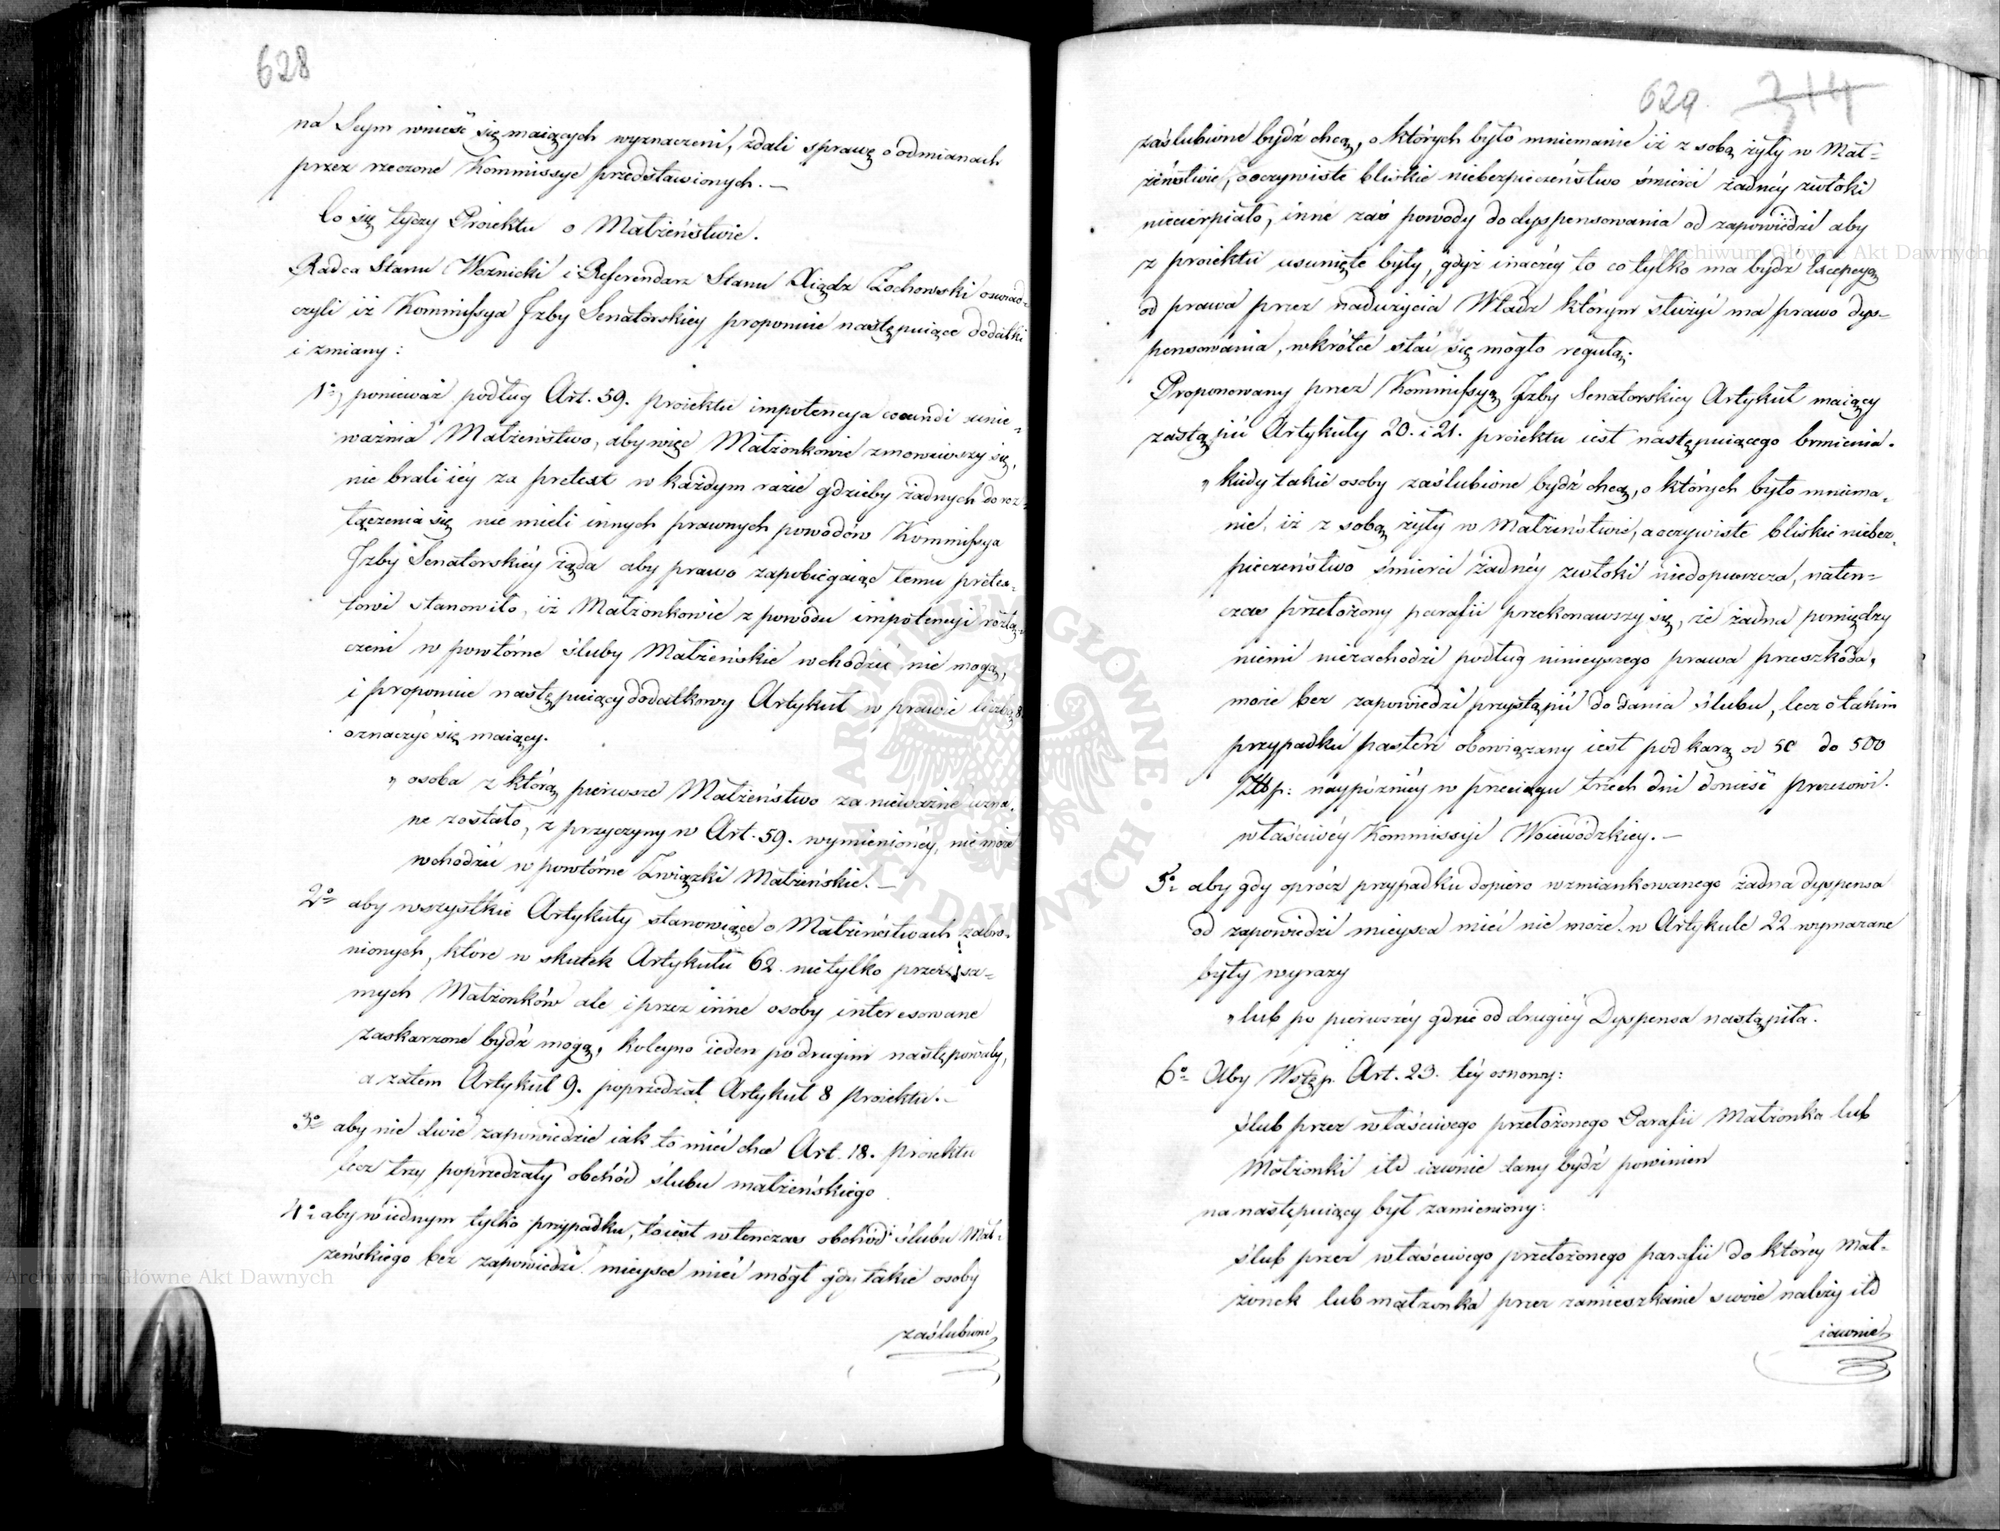 628
na Seym wnieść się maiących wyznaczeni, zdali sprawę o odmianach
przez rzeczone Kommissye przedstawionych. —
Co się tyczy Proiektu o Małżeństwie.
Radca Stanu Woznicki i Referendarz Stanu Xiądz Żochowski oswiad-
czyli iż Kommissya Izby Senatorskiey proponuie następuiące dodatki
i zmiany:
1o, ponieważ podług Art. 59. proiektu impotencya coeundi unie-
ważnia Małżeństwo, aby więc Małżonkowie zmówiwszy się,
nie brali iéy za pretext w każdym razie gdzieby żadnych do roz-
łączenia się nie mieli innych prawnych powodów Kommissya
Izby Senatorskiéy żąda aby prawo zapobiegaiąc temu pretex-
towi stanowiło, iż Małżonkowie z powodu impotencyi rozłą-
czeni w powtórne śluby Małżeńskie wchodzić nie mogą,
i proponuie następuiący dodatkowy Artykuł w prawie liczbą 8.
oznaczyć się maiący.
„ osoba z którą pierwsze Małżeństwo za nieważne uzna-
ne zostało, z przyczyny w Art. 59. wymienionéy, nie może
wchodzić w powtórne Związki Małżeńskie. —
2o aby wszystkie Artykuły stanowiące o Małżeństwach zabro-
nionych, które w skutek Artykułu 62. nietylko przez sa-
mych Małżonków ale i przez inne osoby interesowane
zaskarzone bydź mogą, koleyno ieden po drugim następowały,
a zatem Artykuł 9. poprzedzał Artykuł 8 proiektu. —
3o aby nie dwie zapowiedzie iak to mieć chce Art. 18. proiektu
lecz trzy poprzedzały obchód ślubu małżeńskiego
4o aby w iednym tylko przypadku, to iest wtenczas obchód ślubu Mał-
żeńskiego bez zapowiedzi mieysce mieć mógł gdy takie osoby
zaślubione
629 314
zaślubione bydź chcą, o których było mniemanie iż z sobą żyły w Mał-
żeństwie, a oczywiste bliskie niebezpieczeństwo śmierci żadnéy zwłoki
niecierpiało, inné zaś powody do dyspensowania od zapowiedzi aby
z proiektu usunięte były, gdyż inaczéy to co tylko ma bydź Excepcyą
od prawa przez nadużycia Władz którym służyć ma prawo dys-
pensowania, wkrótce stać się mogło regułą.
Proponowany przez Kommissyą Izby Senatorskiey Artykuł maiący
zastąpić Artykuły 20. i 21. proiektu iest następuiącego brzmienia.
„ kiedy takie osoby zaślubione bydź chcą, o których było mniema-
nie, iż z sobą żyły w Małżeństwie, a oczywiste bliskie niebez-
pieczeństwo śmierci żadnéy zwłoki niedopuszcza, naten-
czas przełożony parafii przekonawszy się, że żadna pomiędzy
niemi niezachodzi podług ninieyszego prawa przeszkoda,
może bez zapowiedzi przystąpić do dania ślubu, lecz o takim
przypadku pasterz obowiązany iest pod karą od 50 do 500
Złłp: naypóźniéy w przeciągu trzech dni donieść Prezesowi
właściwéy Kommissyi Woiewódzkiey. —
5o aby gdy oprócz przypadku dopiero wzmiankowanego żadna dyspensa
od zapowiedzi mieysca mieć nie może, w Artykule 22 wymazane
były wyrazy
„ lub po pierwszéy gdzie od drugiéy Dyspensa nastąpiła.
6o Aby Wstęp Art. 23. téy osnowy:
ślub przez właściwego przełożonego Parafii Małżonka lub
Małżonki itd iawnie dany bydź powinien
na następuiący był zamieniony:
ślub przez właściwego przełożonego parafii do którey Mał-
żonek lub małżonka przez zamieszkanie swoie należy itd
iawnie
Archiwum Główne Akt Dawnych
Archiwum Główne Akt Dawnych
ARCHIWUM GŁÓWNE AKT DAWNYCH